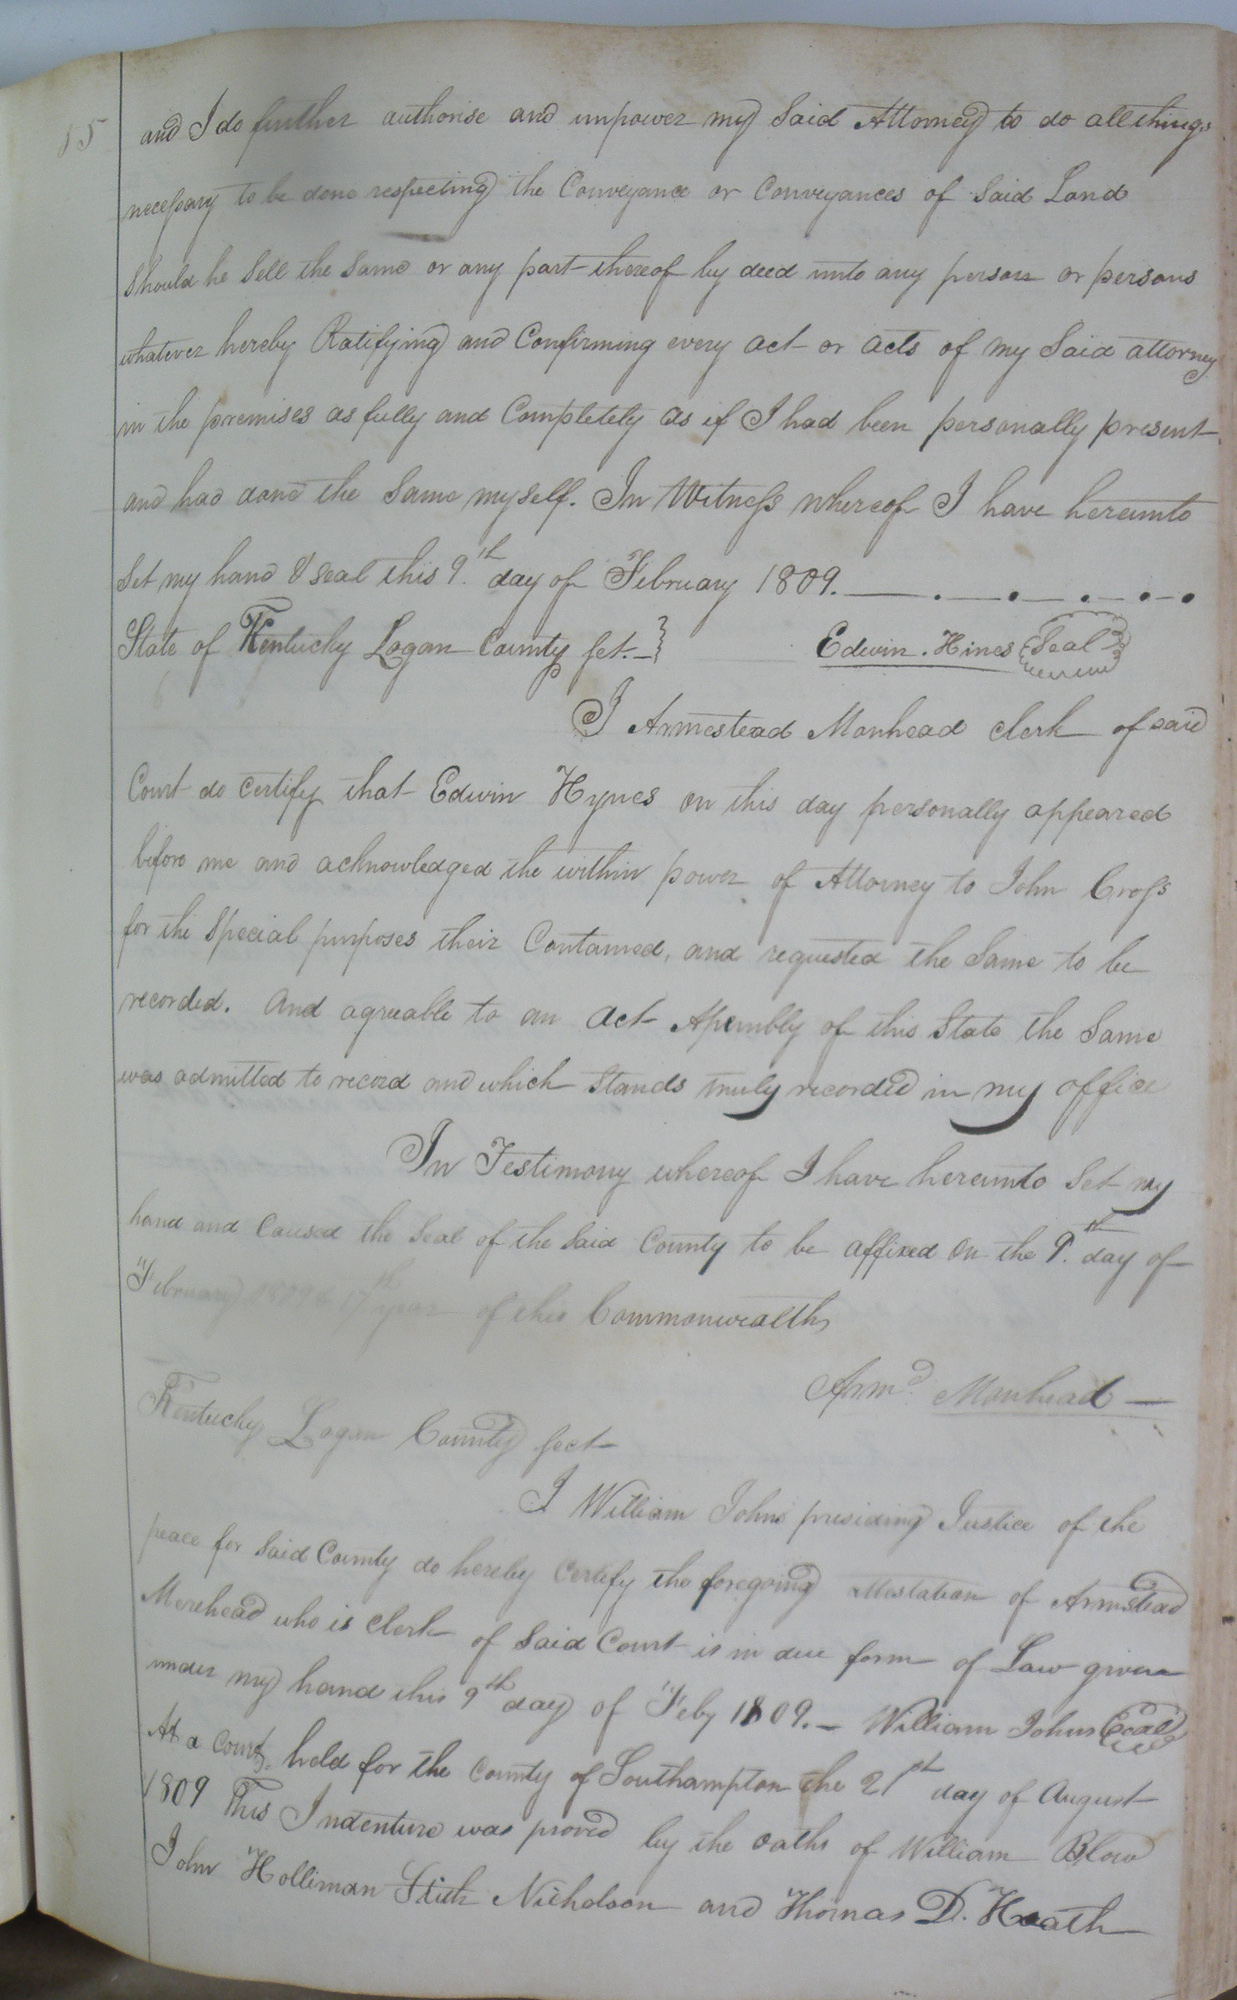 15
and I do further authorise and impower my Said Attorney to do all things
necessary to be done respecting the Conveyance or Conveyances of Said Land
Should he Sell the Same or any part thereof by deed unto any person or persons
whatever hereby Ratifying and Confirming every act or acts of my Said attorney
in the premises as fully and Completely as if I had been personally present
and had done the Same myself. In Witness whereof I have hereunto
Set my hand & seal this 9th day of February 1809.
State of Kentucky Logan County sct. Edwin. Hines Seal
I Armestead Monhead clerk of said
Court do certify that Edwin Hynes on this day personally appeared
before me and acknowledged the within power of Attorney to John Cross
for the Special purposes their Contained, and requested the Same to be
recorded. And agreable to an act Assembly of this State the Same
was admitted to record and which Stands truly recorded in my office
In Testimony whereof I have hereunto Set my
hand and Caused the Seal of the Said County to be affixed on the 9th day of
February 1809 & 17th year of the Commonwealth
Armd. Monhead
Kentucky Logan County sect
I William Johns presiding Justice of the
peace for Said County do hereby Certify the foregoing attestation of Armstead
Morehead who is Clerk of Said Court is in due form of Law given
under my hand this 9th day of Feby 1809. William Johns Seal
At a Court held for the County of Southampton the 21st day of August
1809 This Indenture was proved by the oaths of William Blow
John Holliman Stith Nicholson and Thomas D. Heath